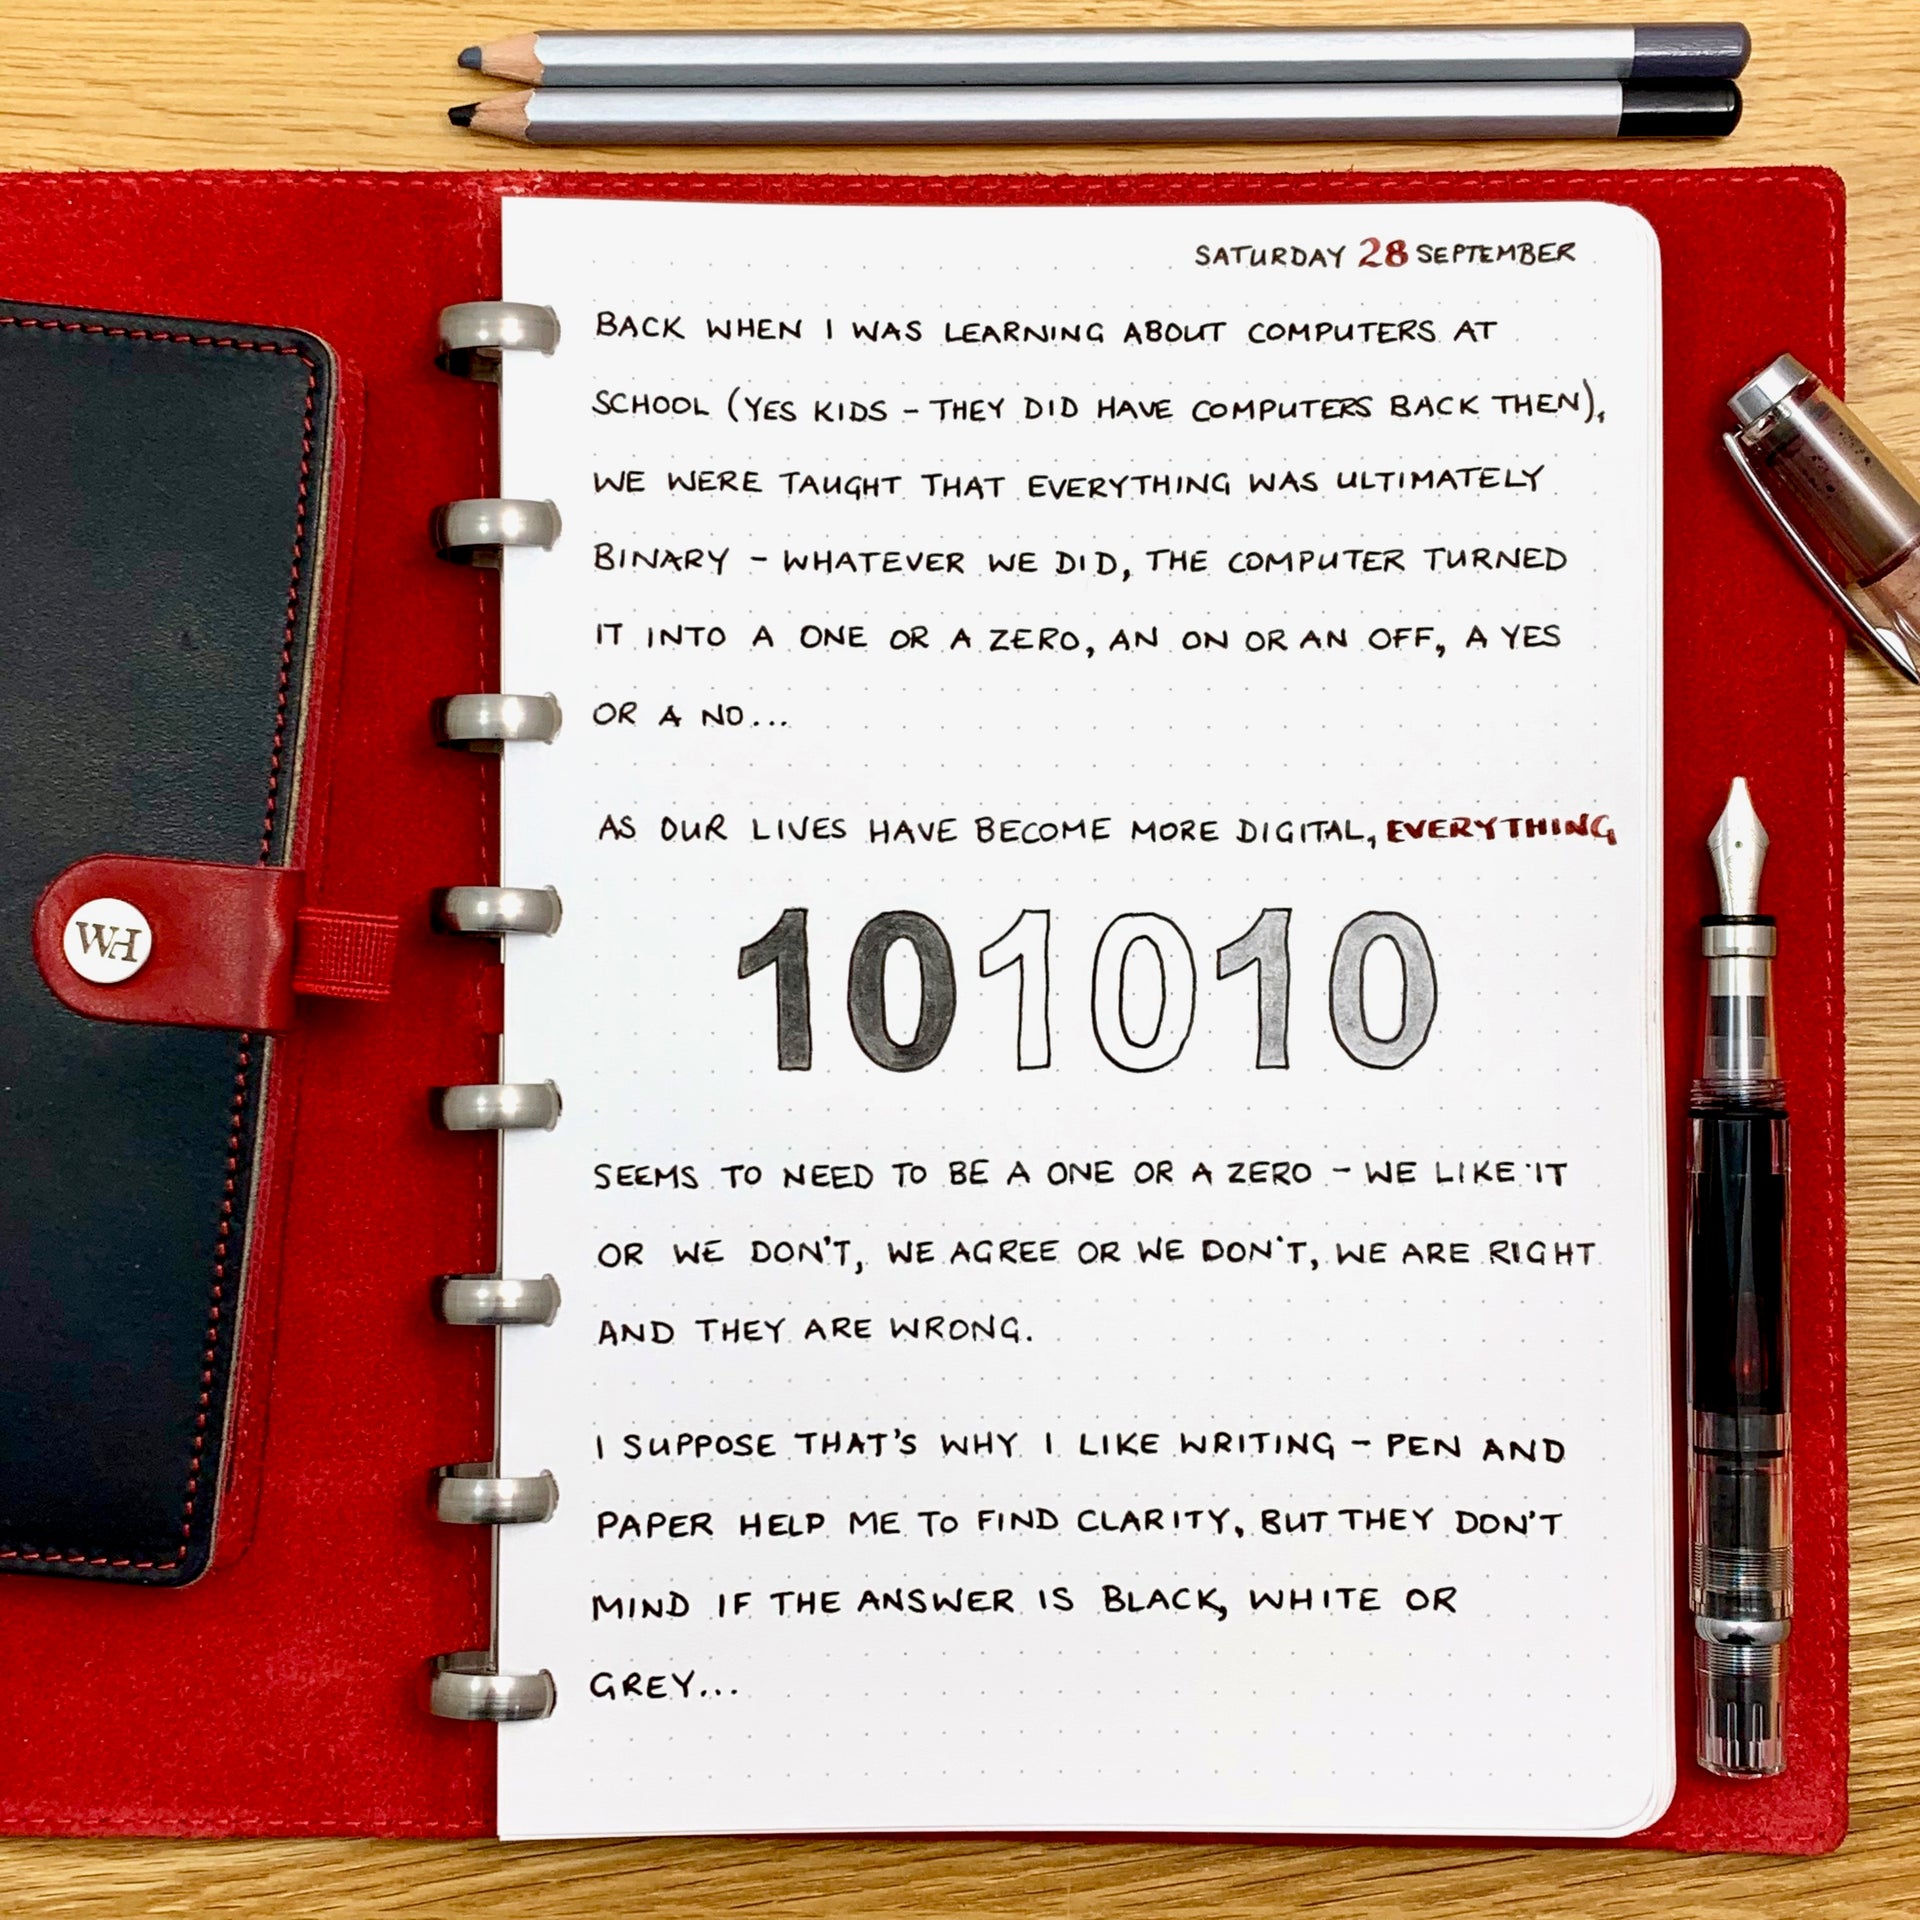 SATURDAY 28 SEPTEMBER
BACK WHEN I WAS LEARNING ABOUT COMPUTERS AT
SCHOOL (YES KIDS - THEY DID HAVE COMPUTERS BACK THEN),
WE WERE TAUGHT THAT EVERYTHING WAS ULTIMATELY
BINARY - WHATEVER WE DID, THE COMPUTER TURNED
IT INTO A ONE OR A ZERO, AN ON OR AN OFF, A YES
OR A NO...
AS OUR LIVES HAVE BECOME MORE DIGITAL, EVERYTHING
101010
SEEMS TO NEED TO BE A ONE OR A ZERO - WE LIKE IT
OR WE DON'T, WE AGREE OR WE DON'T, WE ARE RIGHT
AND THEY ARE WRONG.
I SUPPOSE THAT'S WHY I LIKE WRITING - PEN AND
PAPER HELP ME TO FIND CLARITY, BUT THEY DON'T
MIND IF THE ANSWER IS BLACK, WHITE OR
GREY...
WH